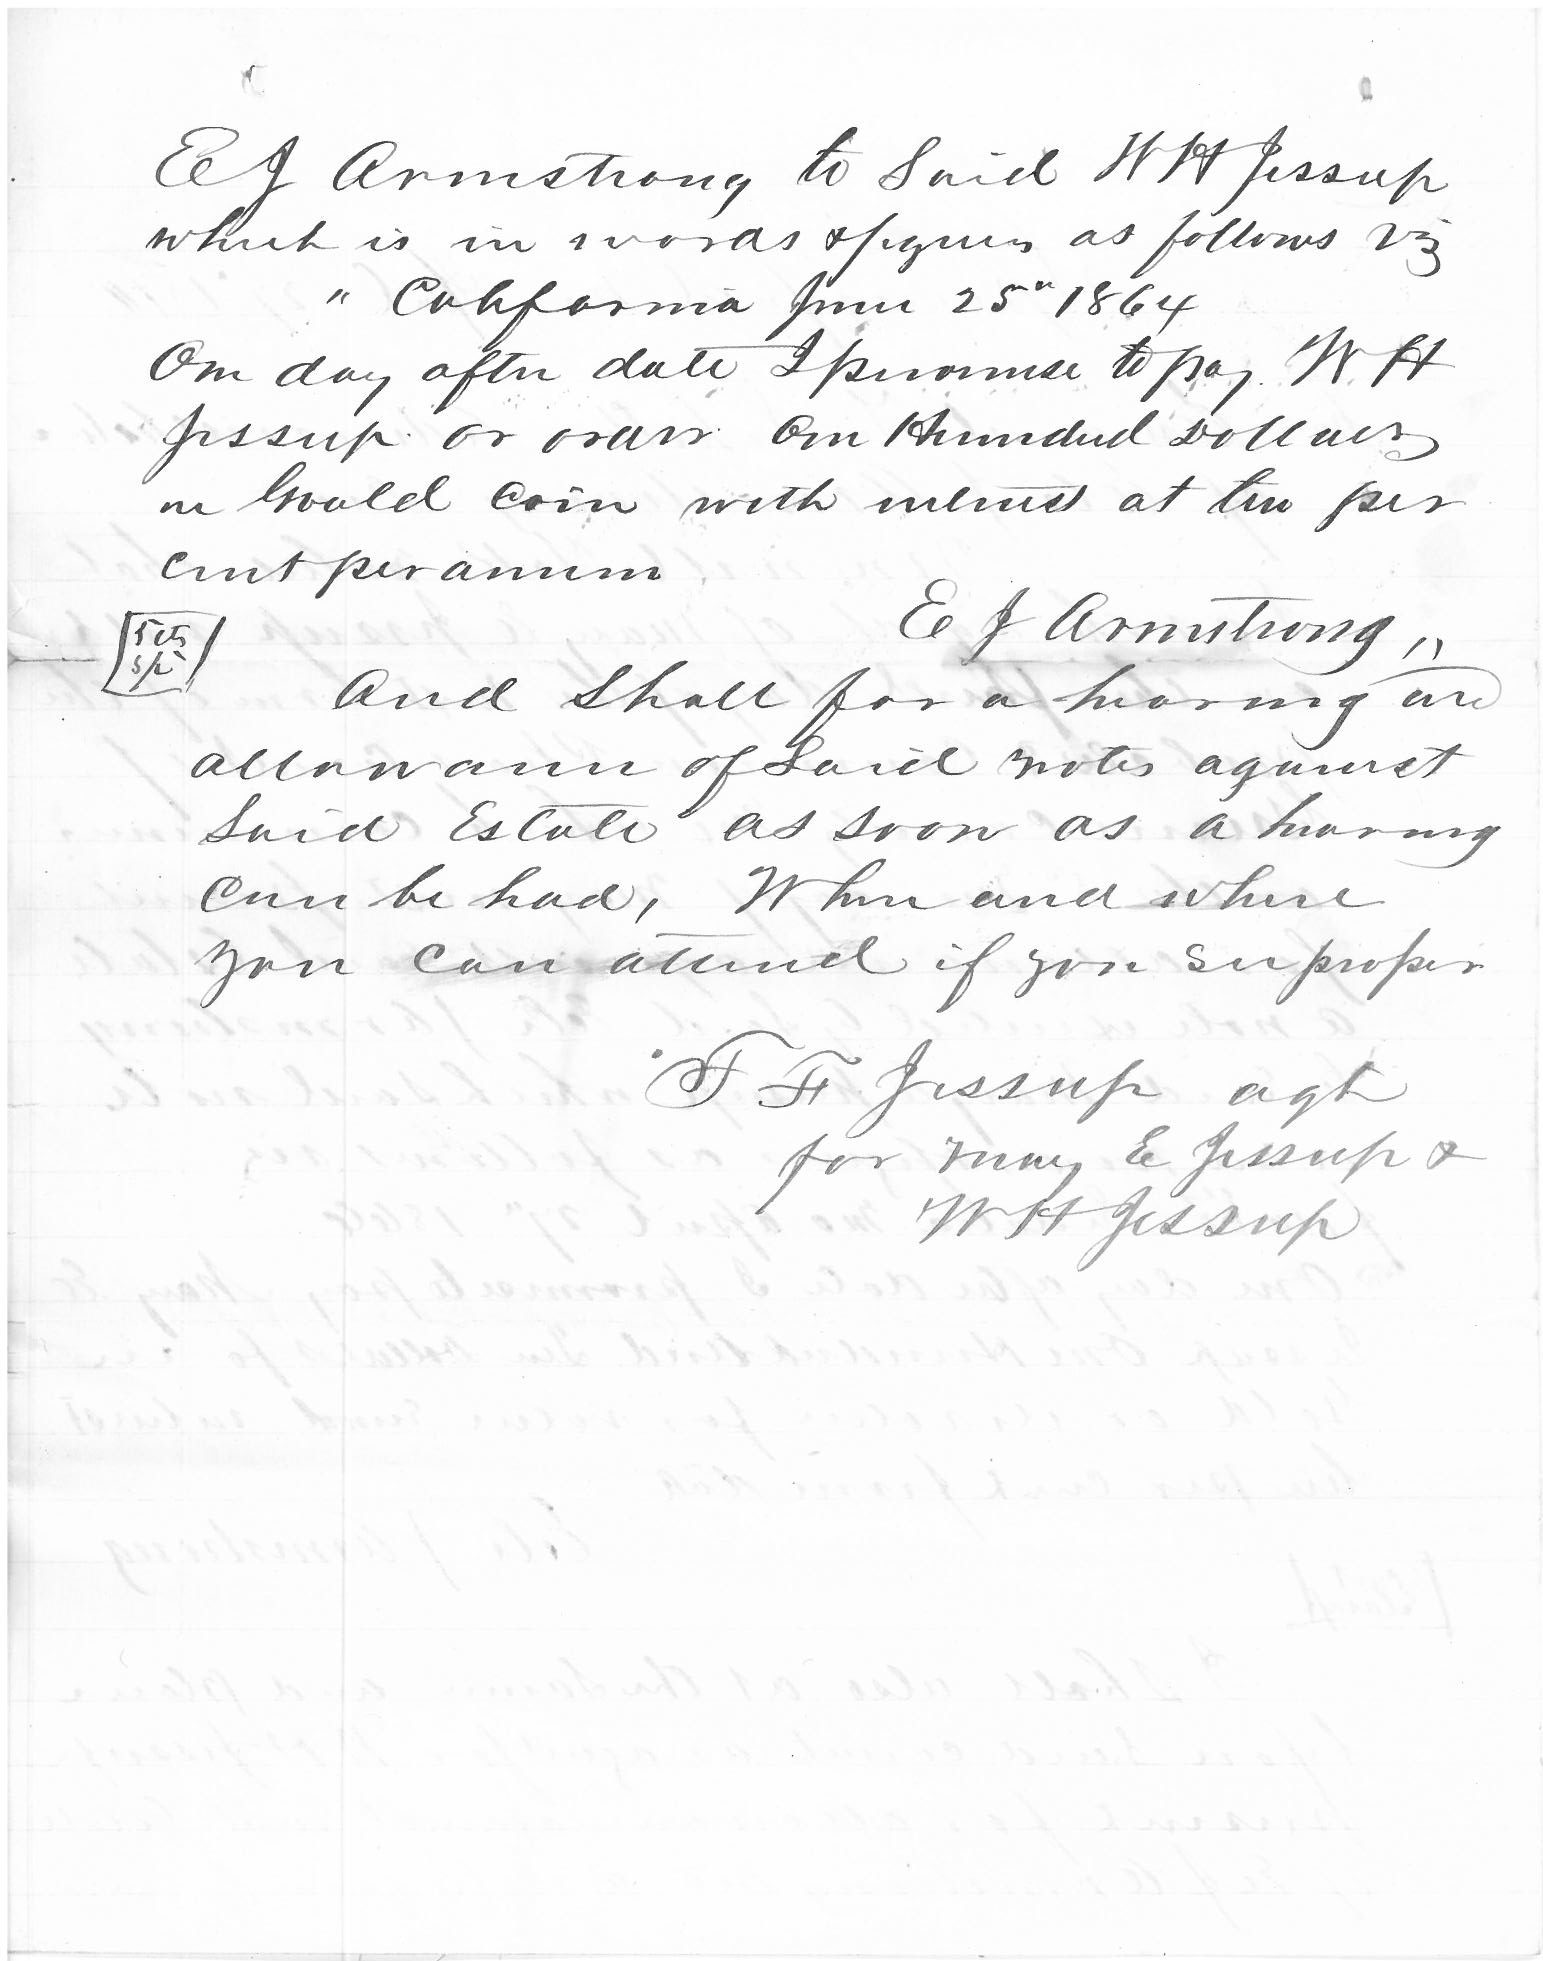 E J Armstrong to Said W H Jessup
which is in words & figures as follows Viz
" California June 25" 1864
One day after date I promise to pay W. H
Jessup or order One Hundred Dollars
in Goald Coin with interest at ten per
cent per anum
E J Armstrong "
5 cts
And Shall for a hearing and
allowance of Said notes against
Said Estate as soon as a hearing
can be had, When and where
you can attend if you see proper
T F Jessup agt
for Mary E Jessup &
W H Jessup